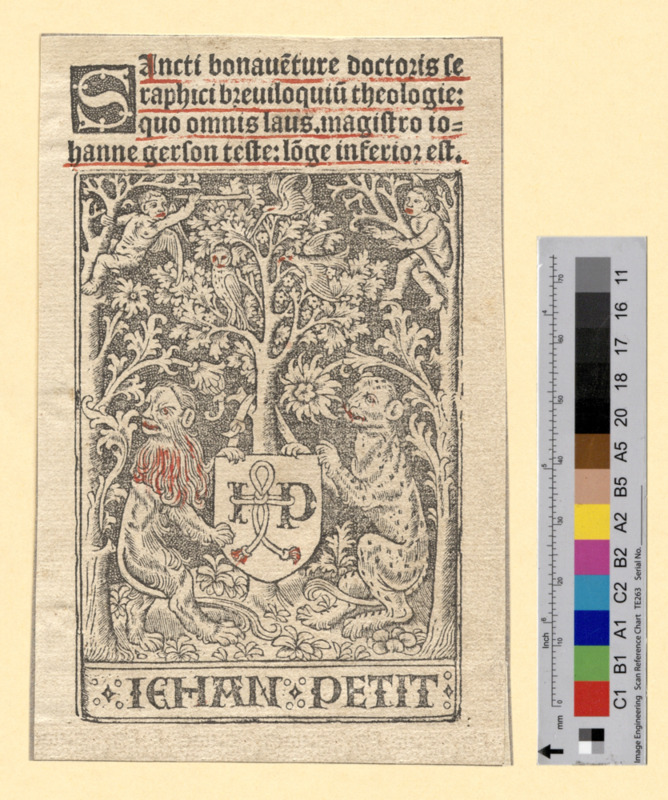 SAncti bonauēture doctoris se
raphici breuiloquiū theologie:
quo omnis laus, magistro io=
hanne gerson teste: lōge inferior est.
I P
IEHAN PETIT
11
16
17
18
20
A5
B5
A2
B2
C2
A1
B1
C1
Image Engineering Scan Reference Chart TE263 Serial No.
Inch
mm
70
60
50
40
30
20
10
0